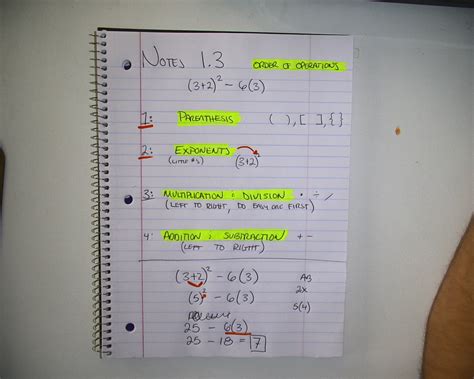 NOTES 1.3 ORDER OF OPERATIONS
(3+2)² - 6(3)
1: PARENTHESIS ( ), [ ], { }
2: EXPONENTS (3+2)²
(LITTLE #'S)
3: MULTIPLICATION : DIVISION · ÷ /
(LEFT TO RIGHT, DO EASY ONE FIRST)
4: ADDITION : SUBTRACTION + -
(LEFT TO RIGHT)
(3+2)² - 6(3)
(5)² - 6(3) 2x
5(4)
25 - 6(3)
25 - 18 = 7